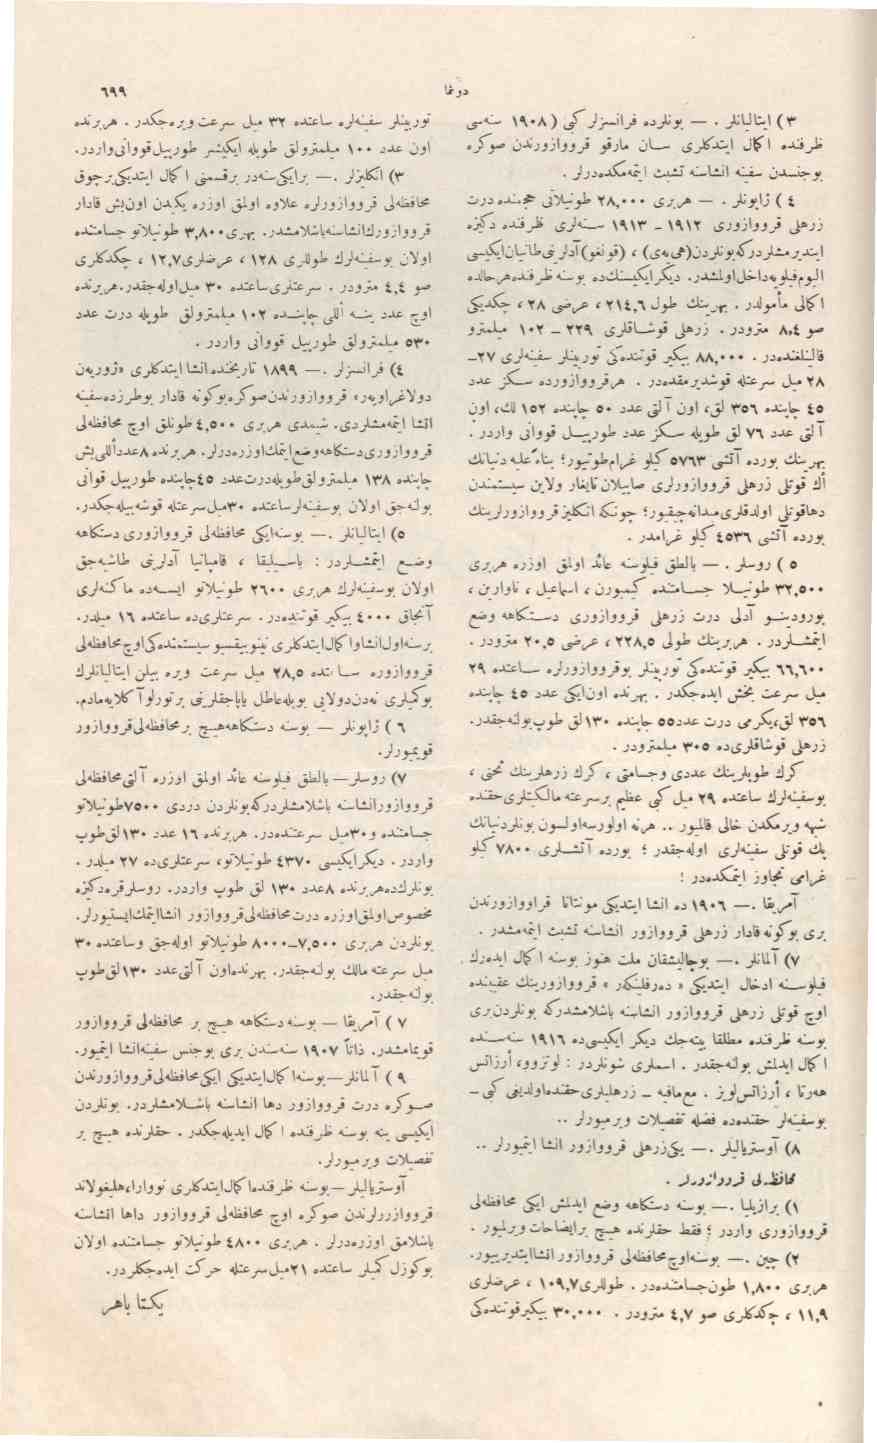 دونما
٦٩٩
٣ ) ایتالیانلر . — بونلرده فرانسزلر کبی ( ١٩٠٨ سنه‌سی
ظرفنده اکمال ایتدکلری سان مارقو قرووازورندن صوکره
بو جنسدن سفینه انشاسنه تشبث ایتمه‌مکده‌درلر .
٤ ) ژاپونلر . — هر بری ٢٨,٠٠٠ طونیلاتی حجمنده درت
زرهلی قرووازوری ١٩١٢ - ١٩١٣ سنه‌لری ظرفنده دکیزه
ایندیرمشلردرکه بونلردن (هی‌یه‌ی) ، (قونغو) آدلرینی طانیان ایکیسی
الیوم فیلویه داخل اولمشدر. دیکر ایکیسنك‌ده بو سنه ظرفنده هر حالده
اکمالی مأمولدر . بهرینك طول ٢١٤,٦ ، عرضی ٢٨ ، چکدیکی
صو ٨,٤ متروه‌در . زرهلی قوشاقلری ٢٢٩ – ١٠٢ میلیمترو
قالینلغنده‌در . ٨٨,٠٠٠ بیکیر قوتنده‌کی توربینلر سفینه‌لری ٢٧-
٢٨ میل سرعتله قوشدیرمقده‌در . هر قرووازورده سکز عدد
٤٥ چاپنده ٣٥٦ لق، اون آلتی عدد ٥٠ چاپنده ١٥٢ لك، اون
آلتی عدد ٧٦ لق طوپله سکز عدد طورپیل قووانی واردر .
بهرینك بورده آتشی ٥٧٦٣ کیلو غرام طوتیور؛ بناءً علیه دنیانك
اك قوتلی زرهلی قرووازورلری صاییلان تایغار ولاین سیستمندن
دها قوتلی اولدقلری میدانه چیقیور؛ چونکه انکلیز قرووازورلرینك
بورده آتشی ٤٥٣٦ کیلو غرامدر .
٥ ) روسلر . — بالطق فیلوسنه عائد اولمق اوزره هر بری
٣٢,٥٠٠ طونیلا جسامتنده کیمبورن ، اسماعیل ، ناوارین ،
بورودینو آدلی درت زرهلی قرووازوری دستکاهه وضع
ایتمشلردر . هر برینك طولی ٢٢٨,٥ ، عرضی ٢٠,٥ متروه‌در .
٦٦,٦٠٠ بیکیر قوتنده‌کی توربینلر بو قرووازورلره ساعتده ٢٩
میل سرعت بخش ایده‌جکدر . بهرنده اون ایکی عدد ٤٥ چاپنده
٣٥٦ لق، یکرمی درت عدد ٥٥ چاپنده ١٣٠ لق طوپ بولنه‌جقدر.
زرهلی قوشاقلری‌ده ٣٠٥ میلیمتروه‌در .
كرك طوپلرینك عددی وجسامتی ، كرك زرهلرینك ثخنی ،
بو سفینه‌لرك ساعتده ٢٩ میل کبی عظیم بر سرعته مالکیتلری حقنده
شبهه ویرمکدن خالی قالمیور .. هر نه اولورسه اولسون بونلر دنیانك
پك قوتلی سفینه‌لری اوله‌جقدر ؛ بورده آتشلری ٧٨٠٠ کیلو
غرامی تجاوز ایتمکده‌در !
آمریقا . — ١٩٠٦ ده انشا ایتدیکی مونتانا قرووازورندن
بری بوکونه قادار زرهلی قرووازور انشاسنه تشبث ایتمه‌مشدر .
٧) آلمانلر . — بو چالیشقان ملت هنوز بو سنه اکمال ایده‌رك
فیلوسنه ادخال ایتدیکی « ده‌رفلینکه‌ر » قرووازورینك عقبنده
اوچ قوتلی زرهلی قرووازور انشاسنه باشلامشدرکه بونلردن بری
بو سنه ظرفنده مطلقا بیته‌جك دیکر ایکیسی‌ده ١٩١٦ سنه‌سنده
اکمال ایدلمش بولنه‌جقدر . اسملری شونلردر : لوتزوو، أرزاتس
هه‌رتا ، أرزاتس لویز . مع مافیه – زرهلیلری حقنده اولدیغی کبی –
بو سفینه‌لر حقنده‌ده فضله تفصیلات ویرمیورلر ..
٨) آوستریالیلر . — یکی زرهلی قرووازور انشا ایتمیورلر ..
محافظه‌لی قرووازورلر .
١) برازیلیا . — بو سنه دستکاهه وضع ایدلمش ایکی محافظه‌لی
قرووازوری واردر ؛ فقط حقلرنده هیچ بر ایضاحات ویرلمیور .
٢) چین . — بو سنه اوچ محافظه‌لی قرووازور انشا ایتدیریور.
هر بری ١,٨٠٠ طون جسامتنده‌در . طوللری ١٠٩,٧ ، عرضلری
١١,٩ ، چکدکلری صو ٤,٧ متروه‌در . ٣٠,٠٠٠ بیکیر قوتنده‌کی
توربینلر سفینه‌لره ساعتده ٣٢ میل سرعت ویره‌جکدر . هر برنده
اون عدد ١٠٠ میلیمترولق طوپله ایکیشر طورپیل قووانی واردر.
٣) انکلیزلر . — بر ایکی سنه‌در بر قسمنی اکمال ایتدیکی بر چوق
محافظه‌لی قرووازورلره علاوه اولمق اوزره یکیدن اون بش قادار
قرووازورك انشاسنه باشلامشدر. بهری ٣,٨٠٠ طونیلاتو جسامتنده
اولان بو سفینه‌لرك طوللری ١٢٨ ، عرضلری ١٢,٧ ، چکدکلری
صو ٤,٤ متروه‌در . سرعتلری ساعتده ٣٠ میل اوله‌جقدر. هر برنده
اوچ عدد ینه أللی چاپنده ١٠٢ میلیمترولق طوپله درت عدد
٥٣٠ میلیمترولق طورپیل قووانی واردر .
٤) فرانسزلر . — ١٨٩٩ تاریخنده انشا ایتدکلری «ژوریه‌ن
دولاغراویه‌ر» قرووازورندن صوکره بوکونه قادار بو طرزده سفینه
انشا ایتمه‌مشلردی. شیمدی هر بری ٤,٥٠٠ طونلق اوچ محافظه‌لی
قرووازوری دستکاهه وضع ایتمك اوزره‌درلر. هر برنده ٨ عدد أللی بش
چاپنده ١٣٨ میلیمترولق طوپله درت عدد ٤٥ چاپنده طورپیل قوانی
بولنه‌جق اولان بو سفینه‌لر ساعتده ٣٠ میل سرعتله قوشه‌بیله‌جکدر.
٥) ایتالیانلر . — بو سنه ایکی محافظه‌لی قرووازوری دستکاهه
وضع ایتمشلردر : باسیلیقا ، قامپانیا آدلرینی طاشیه‌جق
اولان بو سفینه‌لرك هر بری ٢٦٠٠ طونیلاتو ایسه‌ده ماکنه‌لری
آنجاق ٤٠٠٠ بیکیر قوتنده‌در . سرعتلری‌ده ساعتده ١٦ میلدر.
بر سنه اول انشا و اکمال ایتدکلری نینو بیقسیو سیستمنده‌کی اوچ محافظه‌لی
قرووازوره ساعتده ٢٨,٥ میل سرعت ویره بیلن ایتالیانلرك
بو کمیلری نه‌دن دولایی بویله عاطل یاپاجقلرینی بر تورلو آکلایه‌مادم.
٦ ) ژاپونلر — بو سنه دستکاهه هیچ بر محافظه‌لی قرووازور
قویمیورلر.
٧) روسلر — بالطق فیلوسنه عائد اولمق اوزره آلتی محافظه‌لی
قرووازور انشاسنه باشلامشلردرکه بونلردن دردی ٧٥٠٠ طونیلاتو
جسامتنده و ٣٠ میل سرعتنده‌در. هر برنده ١٦ عدد ١٣٠ لق طوپ
واردر . دیکر ایکیسی ٤٣٧٠ طونیلاتو، سرعتلری‌ده ٢٧ میلدر.
بونلرك‌ده هر برنده ٨ عدد ١٣٠ لق طوپ واردر. روسلر قره‌دکیزه
مخصوص اولمق اوزره درت محافظه‌لی قرووازور انشا ایتمك ایستیورلر.
بونلردن هر بری ٧,٥٠٠–٨٠٠٠ طونیلاتو اوله‌جق وساعتده ٣٠
میل سرعته مالك بولنه‌جقدر. بهرنده اون آلتی عدد ١٣٠ لق طوپ
بولنه‌جقدر.
٧ ) آمریقا — بو سنه دستکاهه هیچ بر محافظه‌لی قرووازور
قویمامشدر. ذاتاً ١٩٠٧ سنه‌سندن بری بو جنس سفینه انشا ایتمیور.
٩ ) آلمانلر — بو سنه اکمال ایتدیکی ایکی محافظه‌لی قرووازورندن
صوکره درت قرووازور دها انشاسنه باشلامشلردر. بونلردن
ایکیسی ینه بو سنه ظرفنده اکمال ایدیله‌جکدر . حقلرنده هیچ بر
تفصیلات ویرمیورلر.
آوستریالیلر — بو سنه ظرفنده اکمال ایتدکلری نووارا، هلیغولاند
قرووازورلرندن صوکره اوچ محافظه‌لی قرووازور داها انشاسنه
باشلامق اوزره‌درلر . هر بری ٤٨٠٠ طونیلاتو جسامتنده اولان
بو کوزل کمیلر ساعتده ٢١ میل سرعتله حرکت ایده‌جکلردر.
یکتا باهر